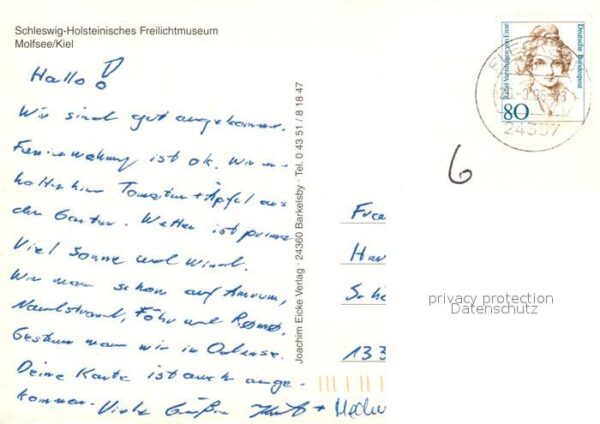 Schleswig-Holsteinisches Freilichtmuseum
Molfsee/Kiel
Hallo!
Wir sind gut angekommen.
Ferienwohnung ist ok. Wir er-
halten hier Tomaten + Äpfel aus
dem Garten. Wetter ist prima
Viel Sonne und Wind.
Wir waren schon auf Amrum,
Nordstrand, Föhr und Rømø.
Gestern waren wir in Odense.
Deine Karte ist auch ange-
kommen. Viele Grüße
Joachim Eicke Verlag · 24360 Barkelsby · Tel. 0 43 51 / 8 18 47
Deutsche Bundespost
Rahel Varnhagen von Ense
80
24337
6
133
privacy protection
Datenschutz